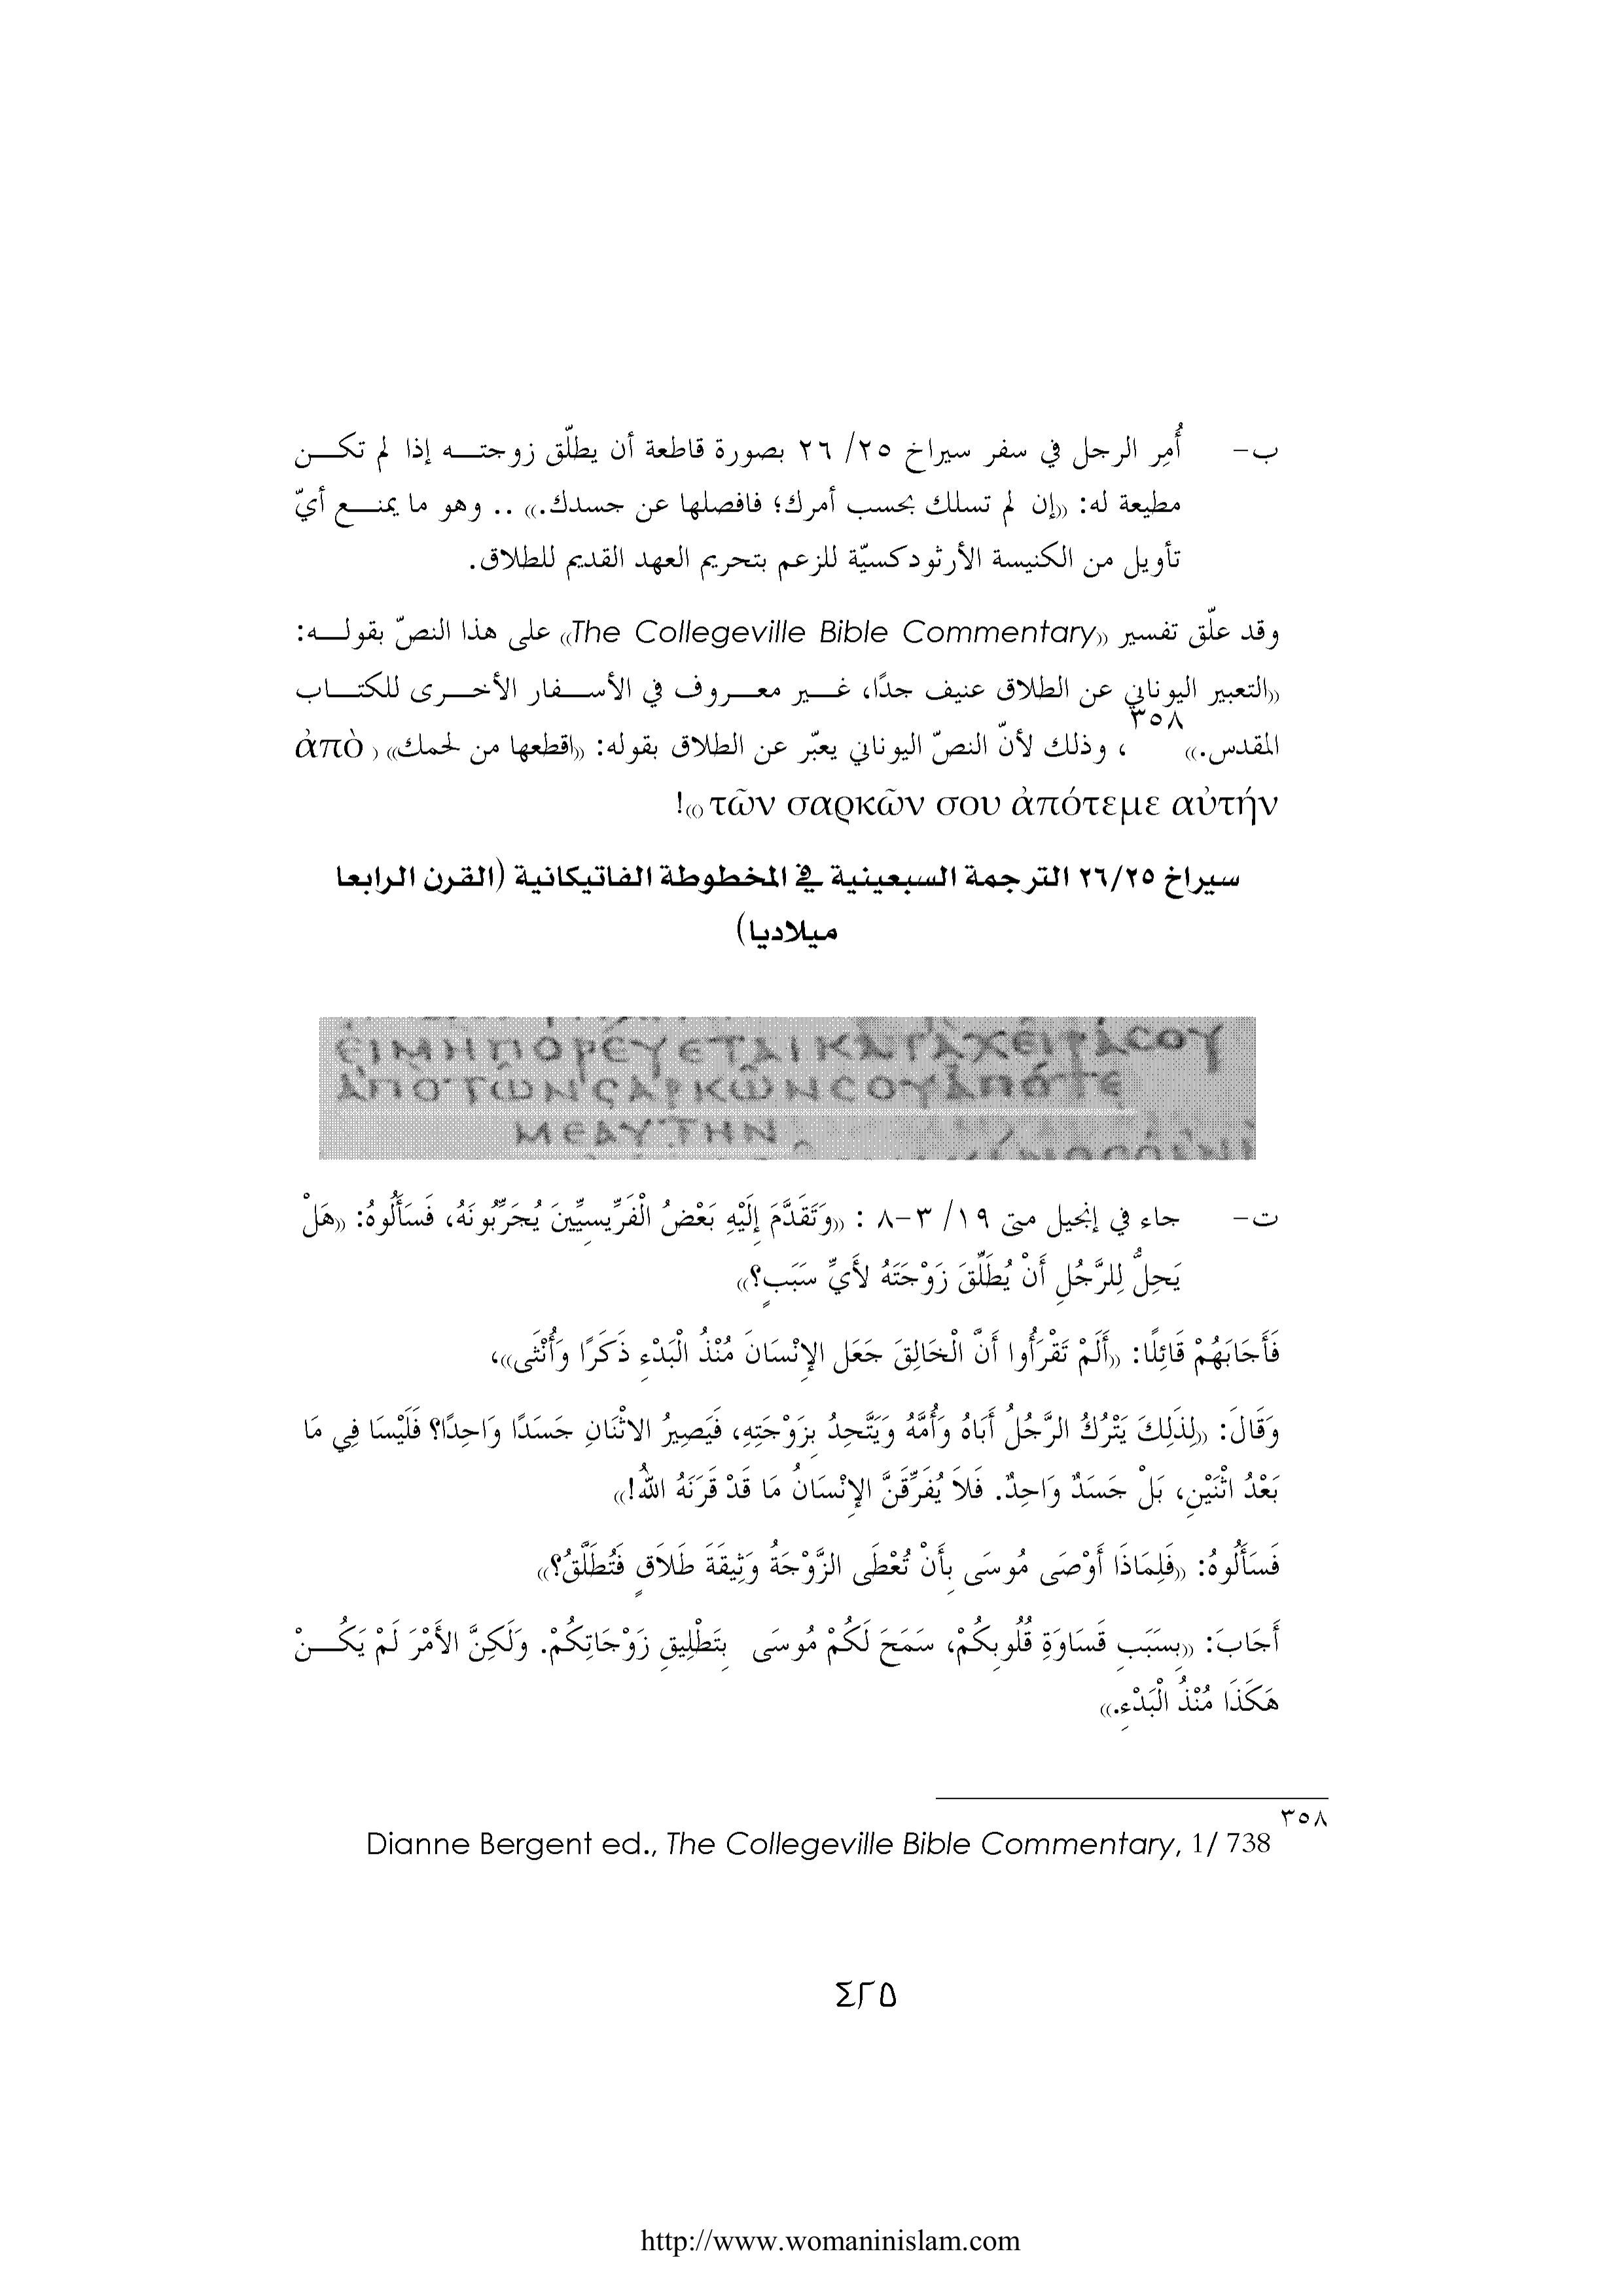 ب- أُمِر الرجل في سفر سيراخ ٢٥/ ٢٦ بصورة قاطعة أن يطلّق زوجتـــه إذا لم تكـــن
مطيعة له: ((إن لم تسلك بحسب أمرك؛ فافصلها عن جسدك.)) .. وهو ما يمنـــع أيّ
تأويل من الكنيسة الأرثودكسيّة للزعم بتحريم العهد القديم للطلاق.
وقد علّق تفسير ((The Collegeville Bible Commentary)) على هذا النصّ بقولـــه:
((التعبير اليوناني عن الطلاق عنيف جدًا، غـــير معـــروف في الأســـفار الأخـــرى للكتـــاب
المقدس.))٣٥٨ ، وذلك لأنّ النصّ اليوناني يعبّر عن الطلاق بقوله: ((اقطعها من لحمك)) ( ἀπὸ
τῶν σαρκῶν σου ἀπότεμε αὐτήν))!
سيراخ ٢٦/٢٥ الترجمة السبعينية في المخطوطة الفاتيكانية (القرن الرابعا
ميلاديا)
ΕΙΜΗΠΟΡΕΥΕΤΑΙΚΑΤΑΧΕΙΡΑСΟΥ
ΑΠΟΤΩΝСΑΡΚΩΝСΟΥΑΠΟΤΕ
ΜΕΑΥΤΗΝ
ت- جاء في إنجيل متى ١٩/ ٣-٨ : ((وَتَقَدَّمَ إِلَيْهِ بَعْضُ الْفَرِّيسِيِّينَ يُجَرِّبُونَهُ، فَسَأَلُوهُ: ((هَلْ
يَحِلُّ لِلرَّجُلِ أَنْ يُطَلِّقَ زَوْجَتَهُ لأَيِّ سَبَبٍ؟))
فَأَجَابَهُمْ قَائِلًا: ((أَلَمْ تَقْرَأُوا أَنَّ الْخَالِقَ جَعَل الإِنْسَانَ مُنْذُ الْبَدْءِ ذَكَرًا وَأُنْثَى))،
وَقَالَ: ((لِذَلِكَ يَتْرُكُ الرَّجُلُ أَبَاهُ وَأُمَّهُ وَيَتَّحِدُ بِزَوْجَتِهِ، فَيَصِيرُ الاثْنَانِ جَسَدًا وَاحِدًا؟ فَلَيْسَا فِي مَا
بَعْدُ اثْنَيْنِ، بَلْ جَسَدٌ وَاحِدٌ. فَلاَ يُفَرِّقَنَّ الإِنْسَانُ مَا قَدْ قَرَنَهُ اللهُ!))
فَسَأَلُوهُ: ((فَلِمَاذَا أَوْصَى مُوسَى بِأَنْ تُعْطَى الزَّوْجَةُ وَثِيقَةَ طَلاَقٍ فَتُطَلَّقُ؟))
أَجَابَ: ((بِسَبَبِ قَسَاوَةِ قُلُوبِكُمْ، سَمَحَ لَكُمْ مُوسَى بِتَطْلِيقِ زَوْجَاتِكُمْ. وَلَكِنَّ الأَمْرَ لَمْ يَكُـــنْ
هَكَذَا مُنْذُ الْبَدْءِ.))
٣٥٨
Dianne Bergent ed., The Collegeville Bible Commentary, 1/ 738
٤٢٥
http://www.womaninislam.com